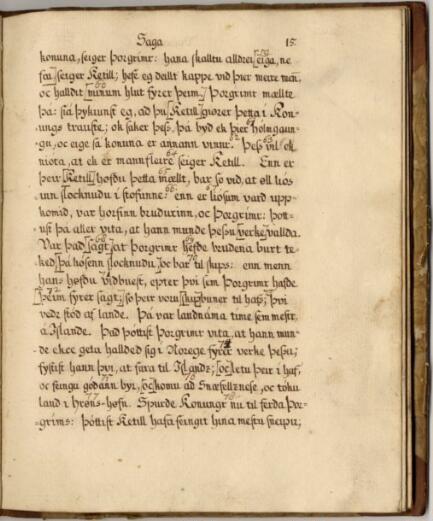 Saga 15.
konuna, seiger Þorgrimr: hana skalltu alldrei eiga, ne
sea seiger Ketill; hefe eg deillt kappe vid þier meire men,
oc halldit minum hlut fyrer þeim. Þorgrimr mællte
þa: sia þykiunst eg, ad þu Ketill giorer þetta i Kon-
ungs trauste; ok saker þess, þa byd ek þier holmgaun-
gu, oc eige sa konuna er annann vinnr. Þess vil ok
niota, at ek er mannfleire seiger Ketill. Enn er
þeir Ketill hofdu þetta mællt, bar so vid, at øll lios
uun slocknudu i stofunne: enn er liosum vard upp-
komid, var horfinn brudurinn, oc Þorgrimr: Þott-
ust þa aller vita, at hann munde þessu verke vallda.
Var þad sagt, at Þorgrimr hefde brudena burt te-
ked þa liosenn slocknudu, oc bar til skips: enn menn
hans hofdu vidbuest, epter þvi sem Þorgrimr hafde
þeim fyrer sagt; so þeir voru skipbuner til hafs; þvi
vedr stód af lande. Þa var landnáma time sem mestr
á Islande. Þad þottist Þorgrimr vita, at hann mun-
de ekce geta hallded sig i Norege fyrer verke þessu;
fystist hann þvi, at fara til Islands; oc letu þeir i haf,
oc feingu godann byr, oc komu ad Snæfellznese, oc toku
land i Hrøns-høfn. Spurde Konungr nu til ferda Þor-
grims: Þóttist Ketill hafa feingit hina mestu sneipu,